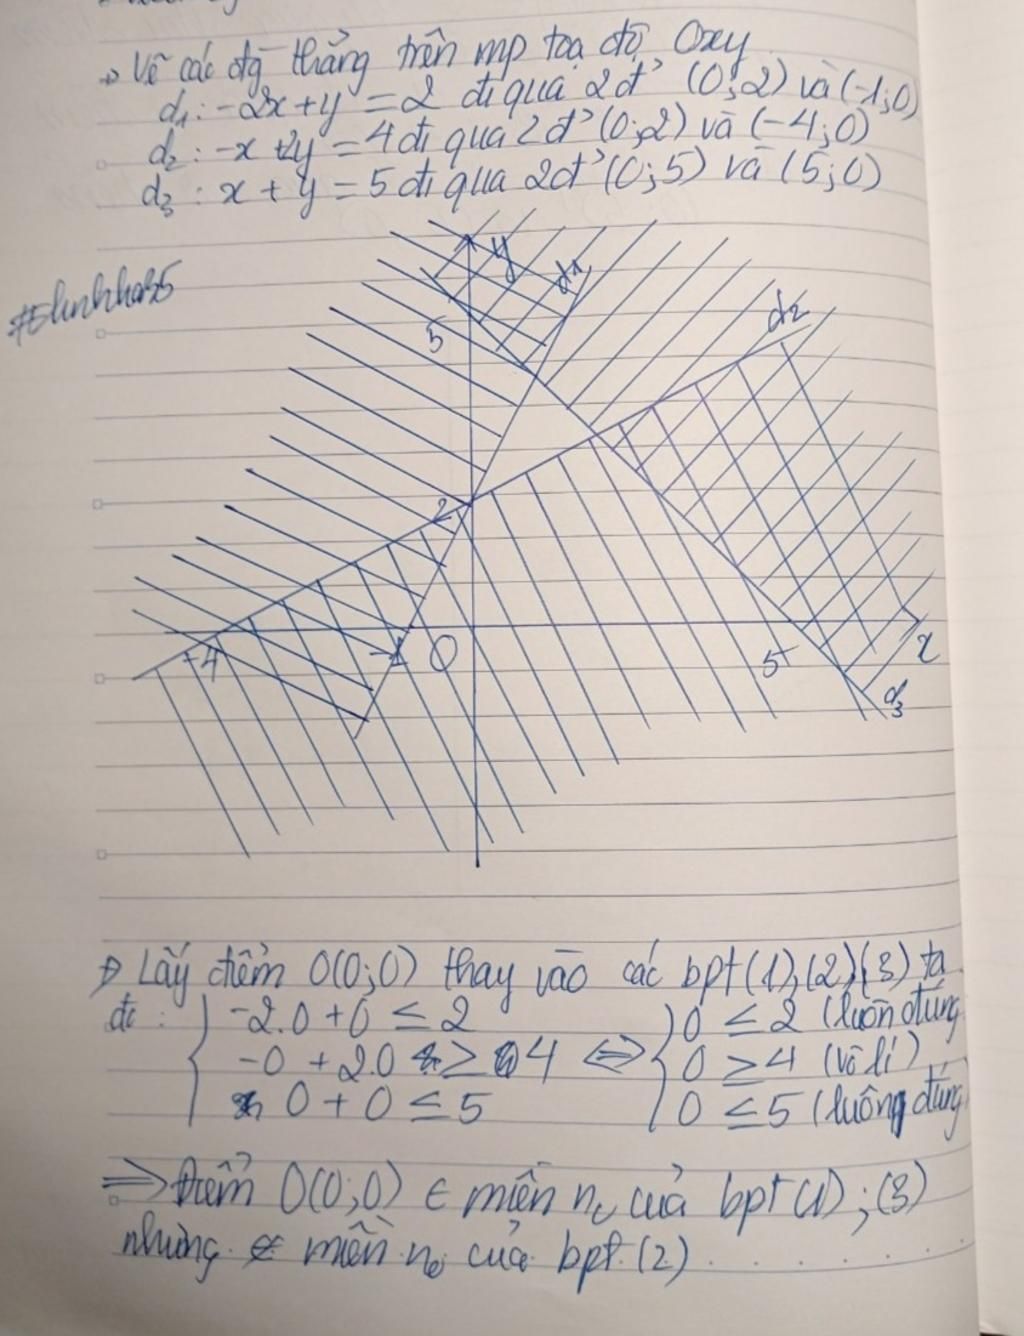 -> Vẽ các đg thẳng trên mp toạ độ Oxy
d1: -2x+y = 2 đi qua 2đ' (0;2) và (-1;0)
d2: -x+2y = 4 đi qua 2đ' (0;2) và (-4;0)
d3: x + y = 5 đi qua 2đ' (0;5) và (5;0)
y
d1
d2
5
2
-4
-1
O
5
x
d3
-> Lấy điểm O(0;0) thay vào các bpt(1),(2),(3) ta
đc: { -2.0 + 0 ≤ 2 { 0 ≤ 2 (luôn đúng
-0 + 2.0 ≥ 4 <=> 0 ≥ 4 (vô lí)
0 + 0 ≤ 5 0 ≤ 5 (luông đúng
=> Điểm O(0;0) ∈ miền no của bpt (1); (3)
nhưng ∉ miền no của bpt (2)